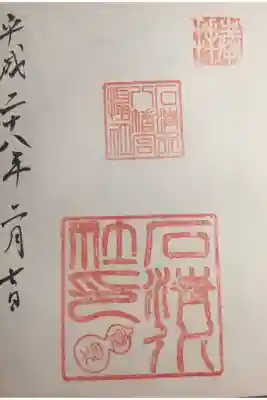 石清水
八幡宮
石清水
社印
平成二十八年二月七日